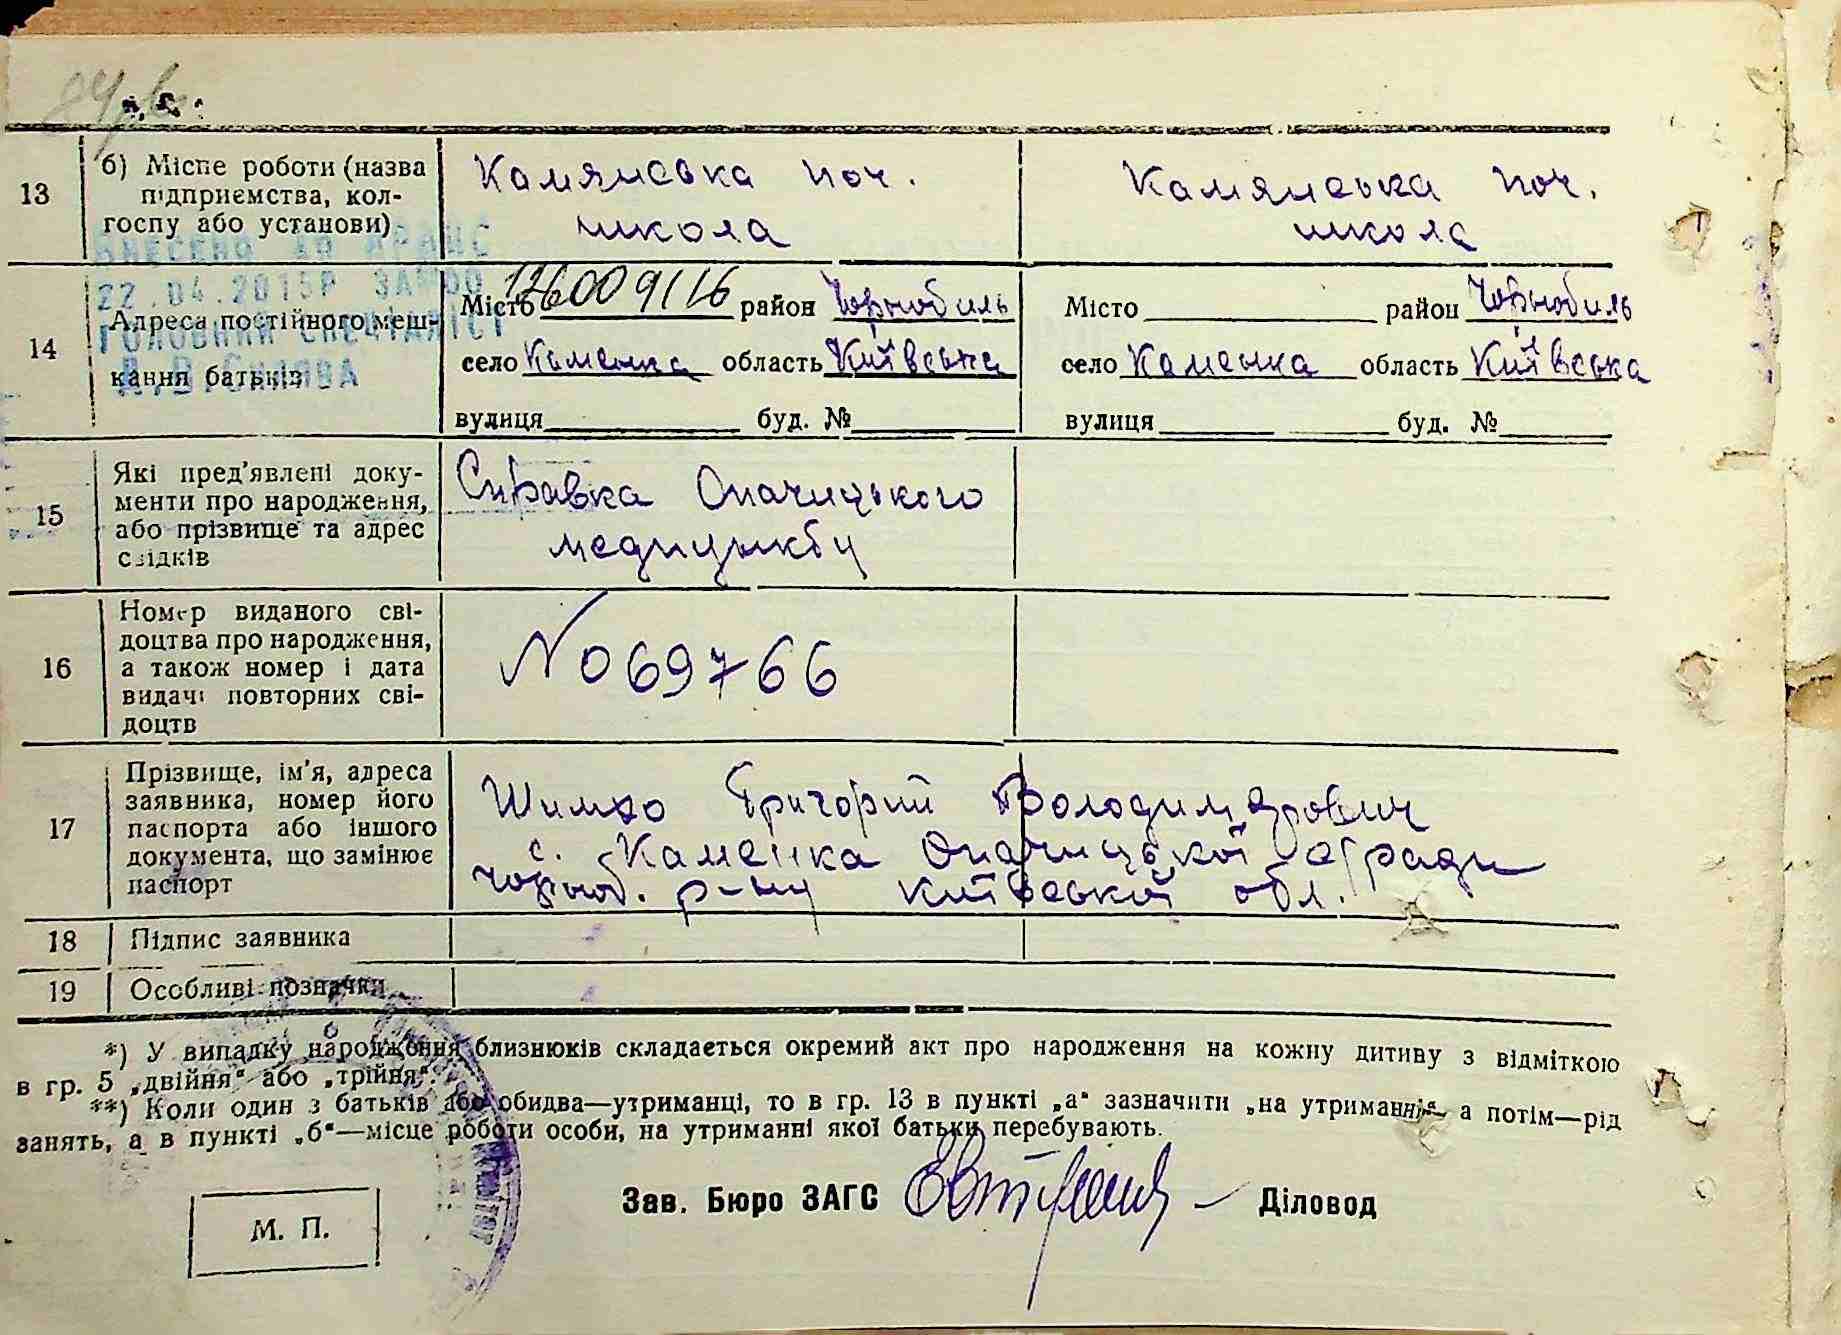 13 б) Місце роботи (назва підприємства, колгоспу або установи)
Камянська поч. школа
Камянська поч. школа
ВНЕСЕНО ДО ДРАЦС
22.04.2015Р
ГОЛОВНИЙ СПЕЦІАЛІСТ
14 Адреса постійного мешкання батьків
Місто 126009116 район Чорнобиль
село Каменка область Київська
вулиця буд. №
Місто район Чорнобиль
село Каменка область Київська
вулиця буд. №
15 Які пред’явлені документи про народження, або прізвище та адрес свідків
Справка Опачицького
медпункту
16 Номер виданого свідоцтва про народження, а також номер і дата видачі повторних свідоцтв
№ 069766
17 Прізвище, ім’я, адреса заявника, номер його паспорта або іншого документа, що замінює паспорт
Григорий Володимирович
с. Каменка Опачицької с/ради
Чорноб. р-ну Київської обл.
18 Підпис заявника
19 Особливі позначки
*) У випадку народження близнюків складається окремий акт про народження на кожну дитину з відміткою
в гр. 5 „двійня“ або „трійня“.
**) Коли один з батьків або обидва—утриманці, то в гр. 13 в пункті „а“ зазначити „на утриманні“, а потім—рід
занять, а в пункті „б“—місце роботи особи, на утриманні якої батьки перебувають.
Зав. Бюро ЗАГС Діловод
М. П.